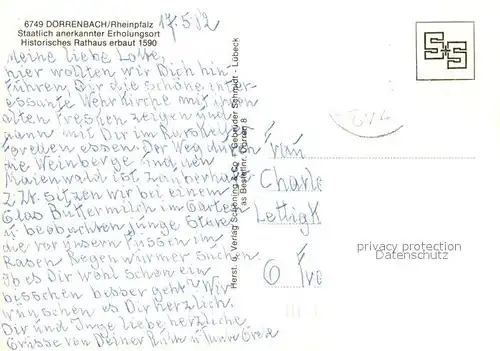 6749 DÖRRENBACH/Rheinpfalz
Staatlich anerkannter Erholungsort
Historisches Rathaus erbaut 1590
17.5.82
Meine liebe Lotte,
hier wollten wir Dich hin
führen, Dir die schöne inter-
essante Wehrkirche mit ihren
alten Fresken zeigen und
dann mit Dir im
Forellen essen. Der Weg durch
die Weinberge und den
Maienwald ist zauberhaft.
Z. Zt. sitzen wir bei einem
Glas Buttermilch im Garten
u. beobachten junge Stare
die vor unsern Füssen im
Rasen Regenwürmer suchen.
Ob es Dir wohl schon ein
bisschen besser geht? Wir
wünschen es Dir herzlich.
Dir und Inge liebe herzliche
Grüsse von Deiner Ruth u. Tante Grete
Herst. u. Verlag Schöning & Co + Gebrüder Schmidt - Lübeck
as Bestellnr. Dörren 8
S+S
Frau
Charlo
Lettigk
6 Fra
privacy protection
Datenschutz